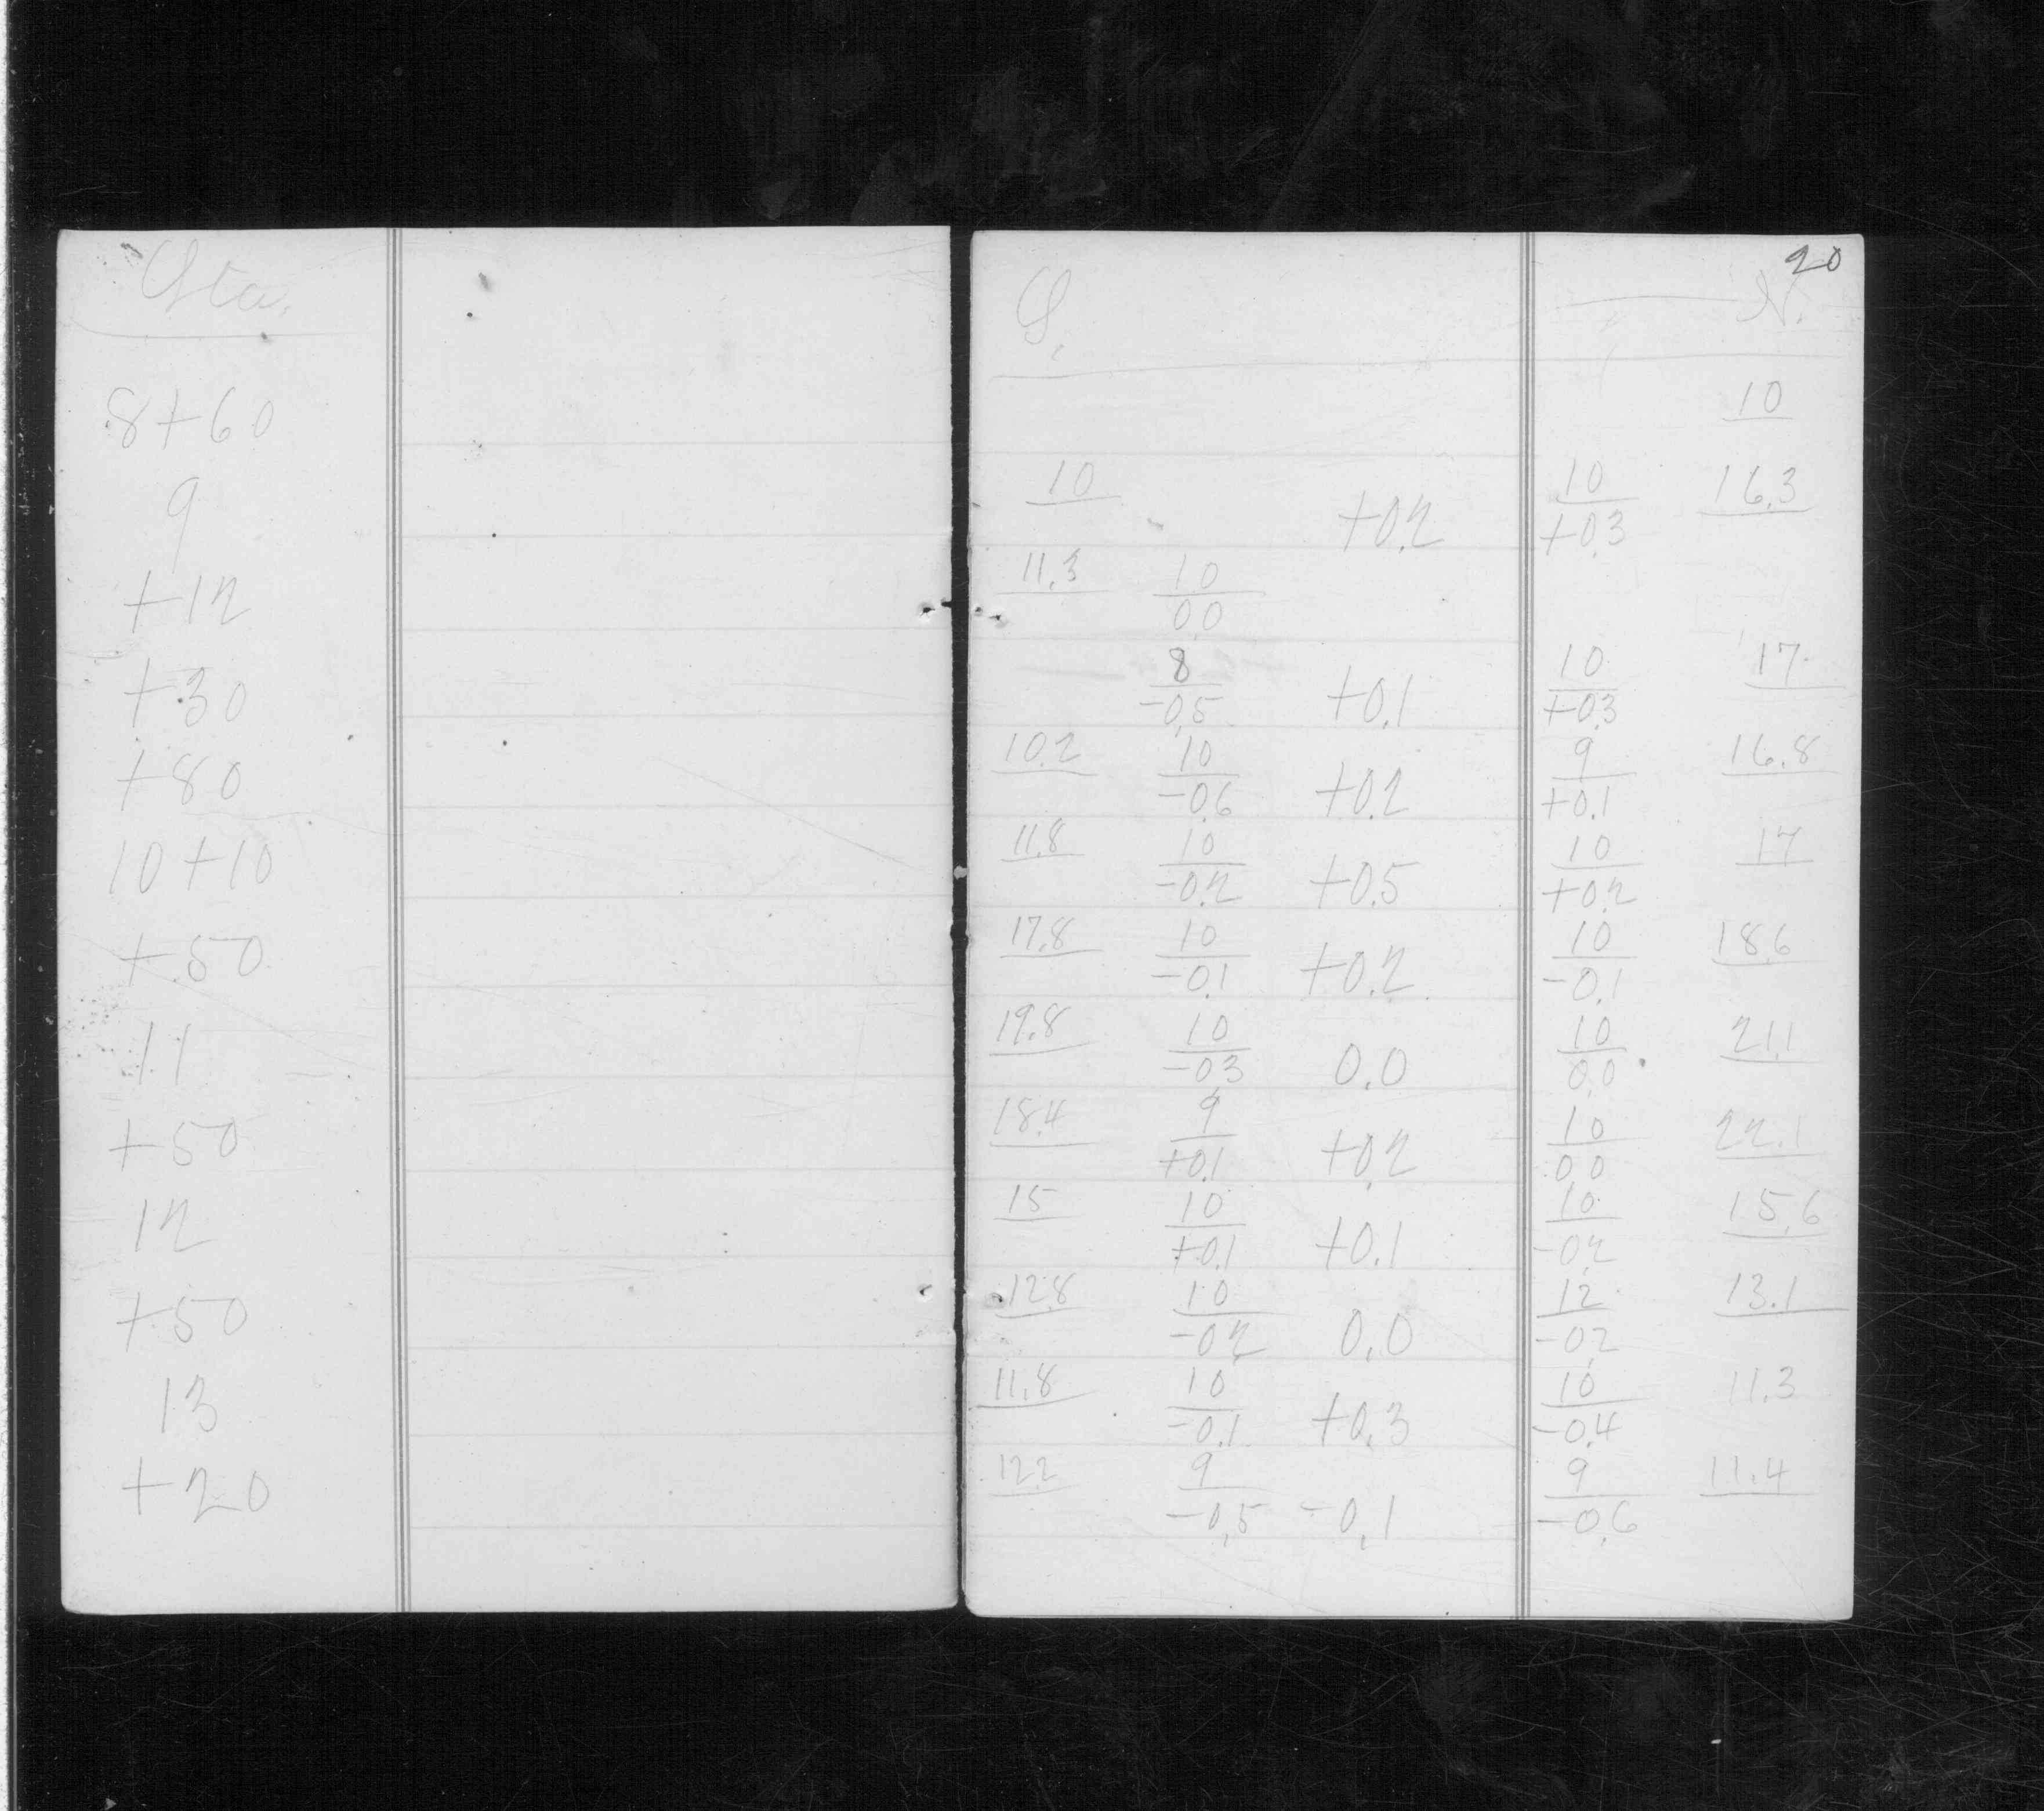 20
Sta. S. N.
8+60 10
9 10 +0.2 10/+0.3 16.3
+12 11.3 10/0.0
+30 8/-0.5 +0.1 10/+0.3 17
+80 10.2 10/-0.6 +0.2 9/+0.1 16.8
10+10 11.8 10/-0.2 +0.5 10/+0.2 17
+50 17.8 10/-0.1 +0.2 10/-0.1 18.6
11 19.8 10/-0.3 0.0 10/0.0 21.1
+50 18.4 9/+0.1 +0.2 10/0.0 22.1
12 15 10/+0.1 +0.1 10/-0.2 15.6
+50 12.8 10/-0.2 0.0 12/-0.2 13.1
13 11.8 10/-0.1 +0.3 10/-0.4 11.3
+20 12.2 9/-0.5 -0.1 9/-0.6 11.4